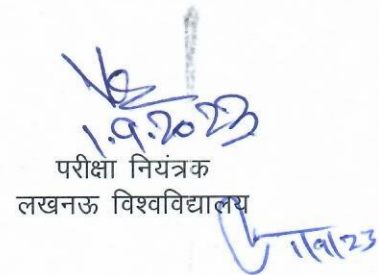 1.9.2023
परीक्षा नियंत्रक
लखनऊ विश्वविद्यालय
1/9/23